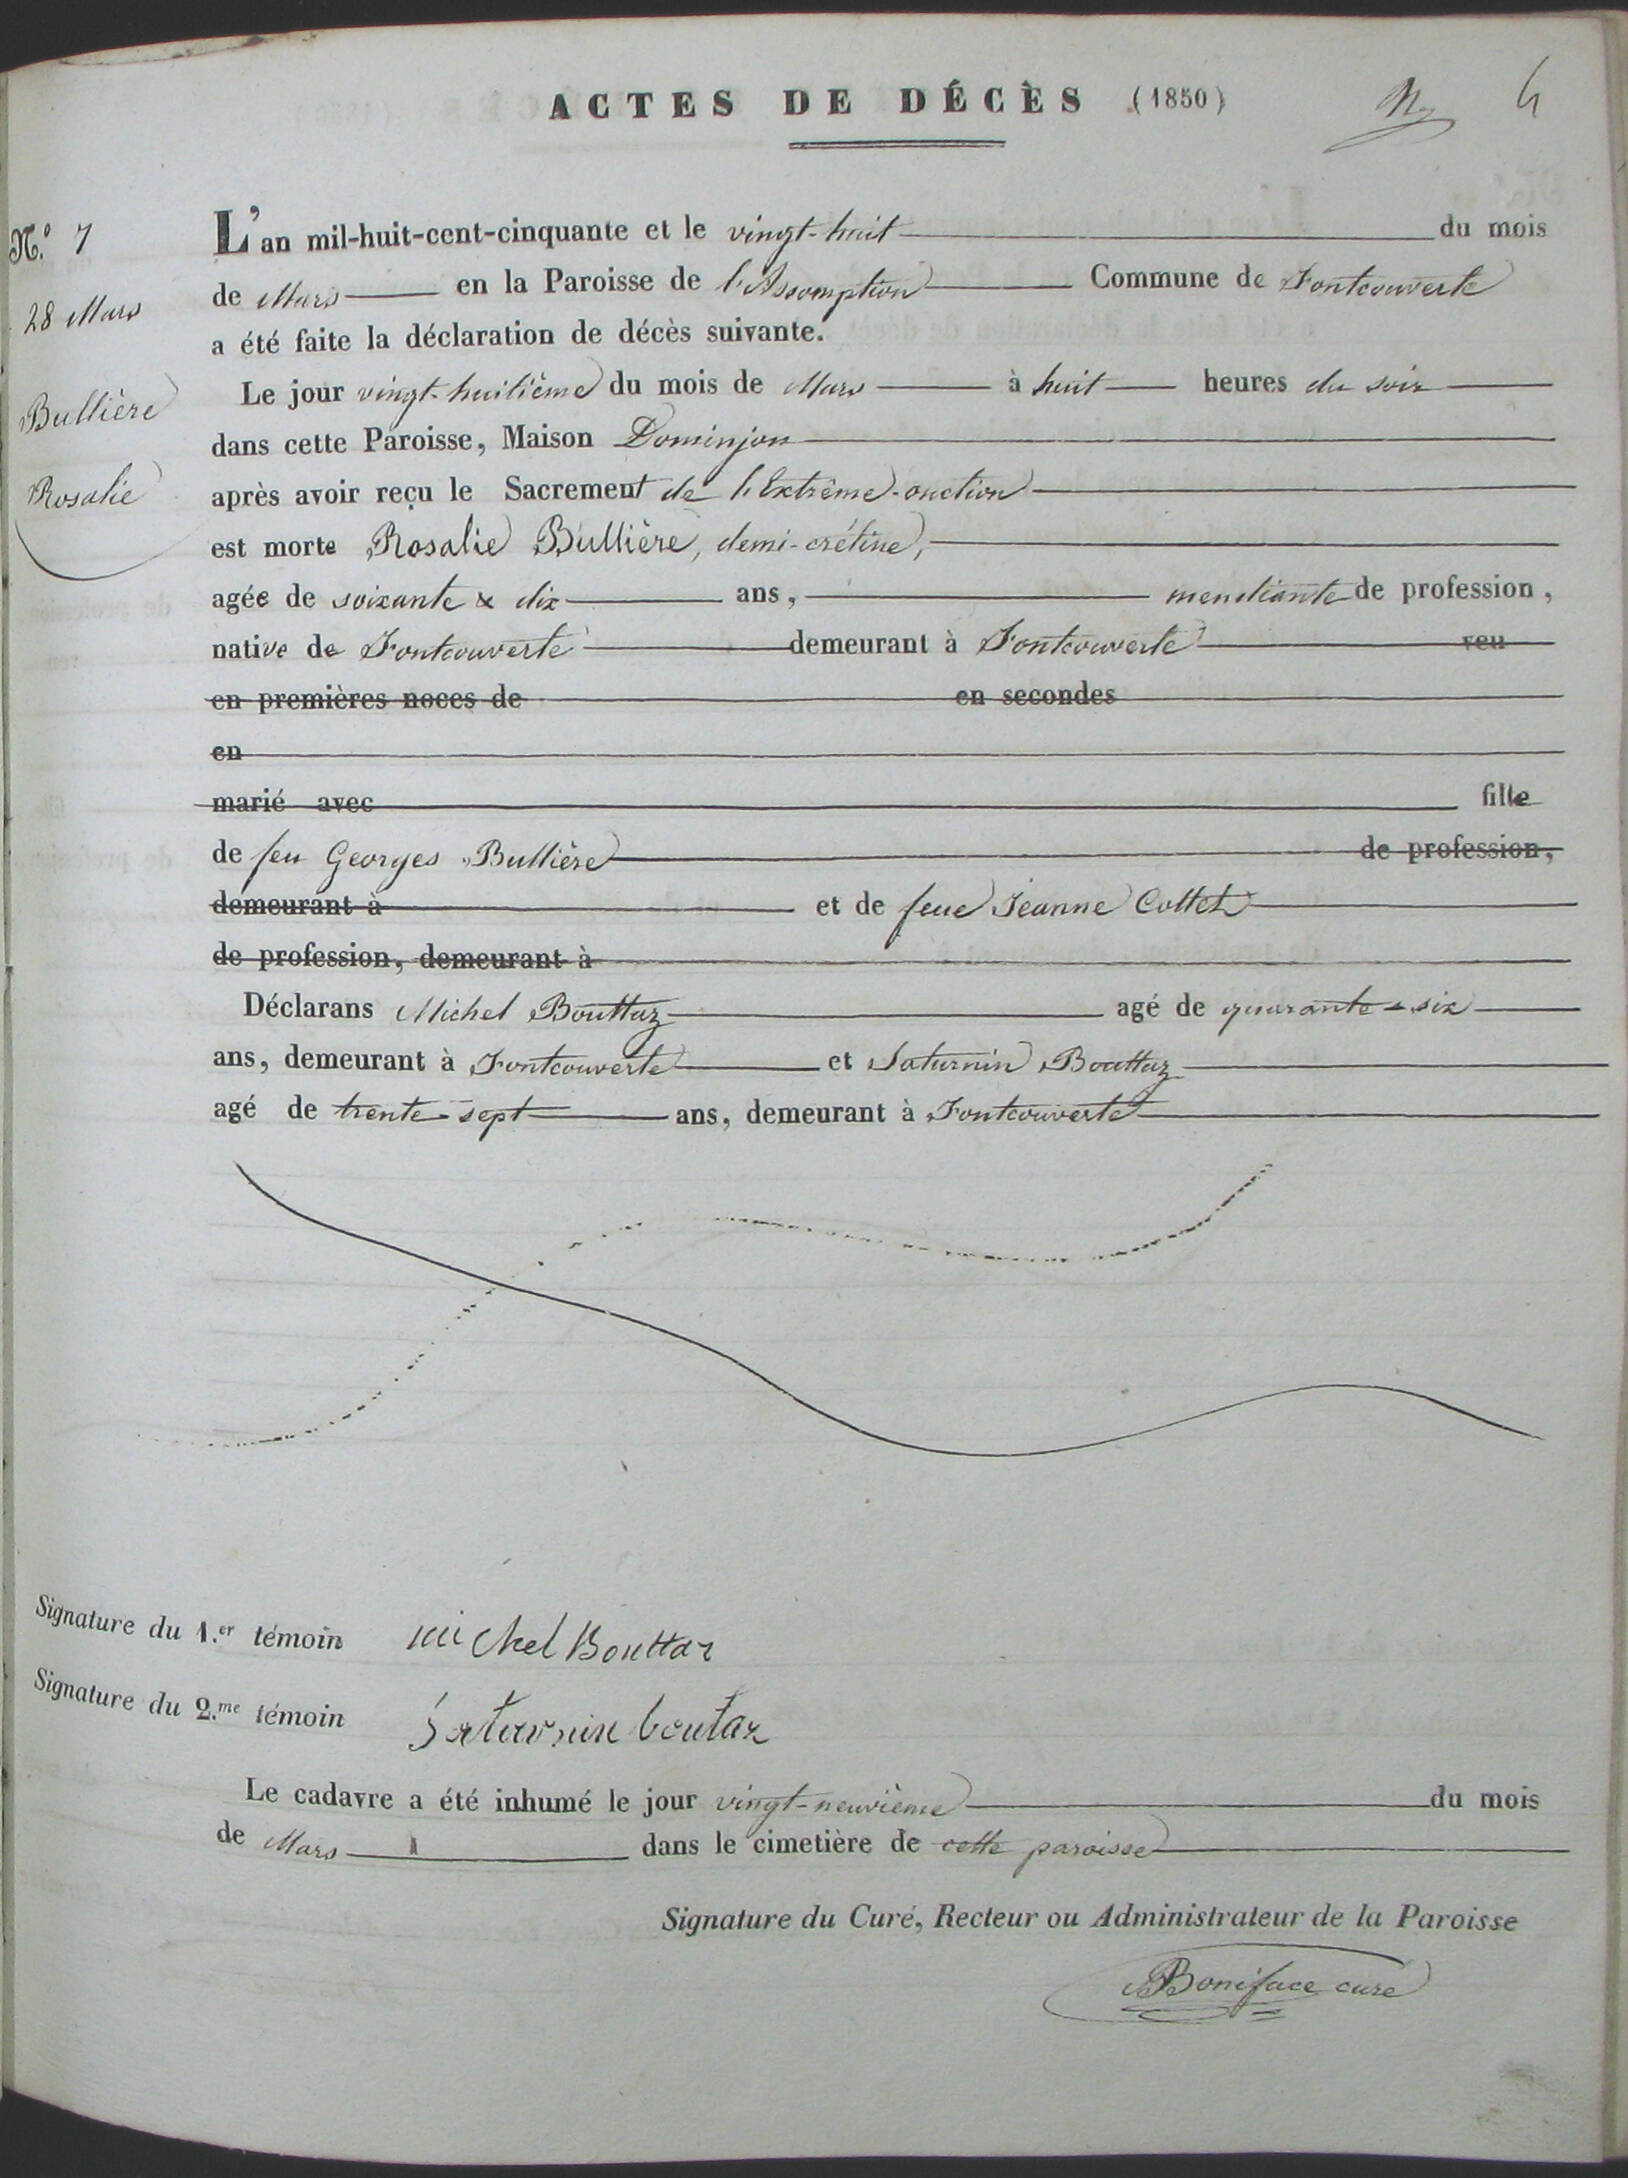 ACTES DE DÉCÈS (1850)
4
N.º 7
28 Mars
Bullière
Rosalie
L'an mil-huit-cent-cinquante et le vingt-huit du mois
de Mars en la Paroisse de l'Assomption Commune de Fontcouverte
a été faite la déclaration de décès suivante.
Le jour vingt-huitième du mois de Mars à huit heures du soir
dans cette Paroisse, Maison Dominjon
après avoir reçu le Sacrement de l'Extrême-onction
est morte Rosalie Bullière, demi-crétine,
agée de soixante & dix ans, mendiante de profession,
native de Fontcouverte demeurant à Fontcouverte veu
en premières noces de en secondes
en
marié avec fille
de feu Georges Bullière de profession,
demeurant à et de feue Jeanne Collet
de profession, demeurant à
Déclarans Michel Bouttaz agé de quarante-six
ans, demeurant à Fontcouverte et Saturnin Bouttaz
agé de trente-sept ans, demeurant à Fontcouverte
Signature du 1.er témoin michel Bouttaz
Signature du 2.me témoin Saturnin boutaz
Le cadavre a été inhumé le jour vingt-neuvième du mois
de Mars dans le cimetière de cette paroisse
Signature du Curé, Recteur ou Administrateur de la Paroisse
Boniface curé